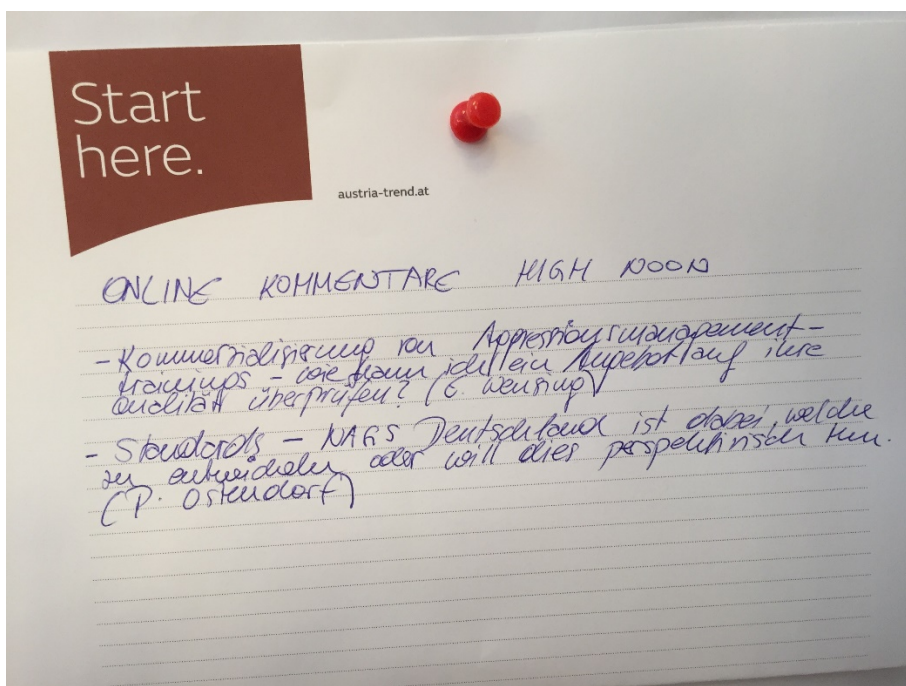 Start
here.
austria-trend.at
ONLINE KOMMENTARE HIGH NOON
- Kommerzialisierung von Aggressionsmanagement-
trainings - wie kann ich ein Angebot auf ihre
Qualität überprüfen? (E. Wensing)
- Standards - NAGS Deutschland ist dabei, welche
zu entwickeln oder will dies perspektivisch tun.
(P. Ostendorf)